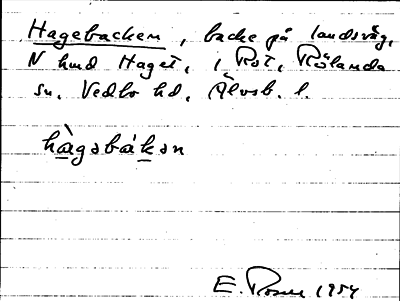 Hagebacken, backe på landsväg,
N hmd Haget, i Rot, Rölanda
sn. Vedbo hd, Älvsb. l.
hàgəbákən
E. Rosén 1954